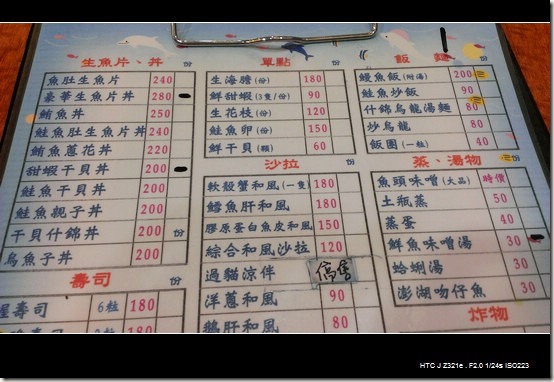 生魚片、丼 份
魚肚生魚片 240
豪華生魚片丼 280
鮪魚丼 250
鮭魚肚生魚片丼 240
鮪魚蔥花丼 220
甜蝦干貝丼 200
鮭魚干貝丼 200
鮭魚親子丼 200
干貝什錦丼 200 份
烏魚子丼 200
壽司
握壽司 6粒 180
180
單點 份
生海膽(份) 180
鮮甜蝦(3隻/份) 90
生花枝(份) 120
鮭魚卵(份) 150
鮮干貝(顆) 60
沙拉 份
軟殼蟹和風(一隻 180
鱈魚肝和風 180
膠原蛋白魚皮和風 150
綜合和風沙拉 120
過貓涼伴 停售
洋蔥和風 90
鵝肝和風 80
飯 麵
鰻魚飯(附湯) 200
鮭魚炒飯 90
什錦烏龍湯麵 80
炒烏龍 80
飯團(一粒) 40
蒸、湯物 份
魚頭味噌(大品) 時價
土瓶蒸 50
蒸蛋 40
鮮魚味噌湯 30
蛤蜊湯 30
澎湖吻仔魚 30
炸物
HTC J Z321e . F2.0 1/24s ISO223